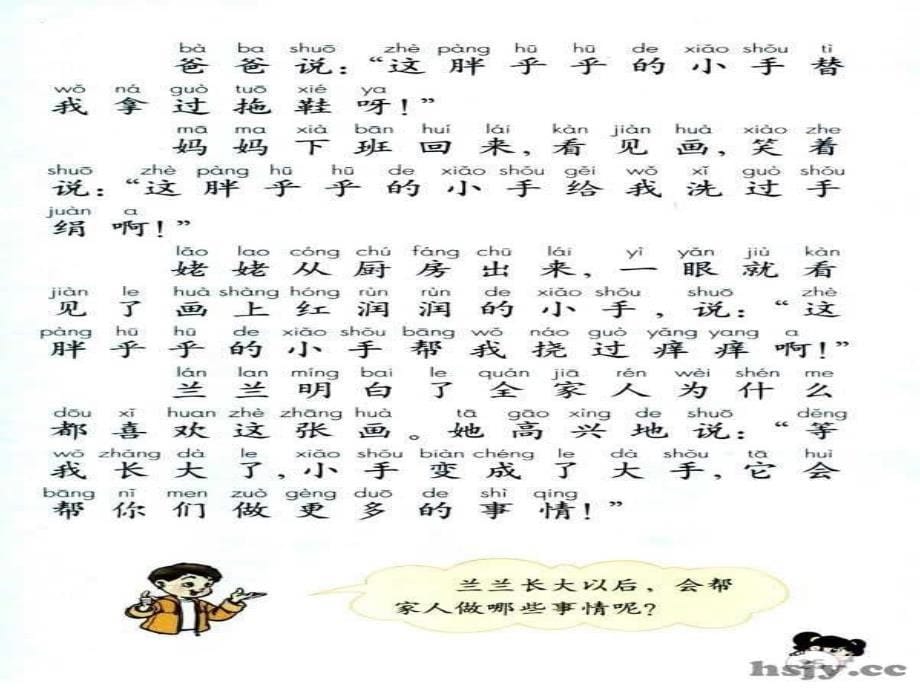 bà ba shuō zhè pàng hū hū de xiǎo shǒu tì
爸爸说:“这胖乎乎的小手替
wǒ ná guò tuō xié ya
我拿过拖鞋呀!”
mā ma xià bān huí lái kàn jiàn huà xiào zhe
妈妈下班回来,看见画,笑着
shuō zhè pàng hū hū de xiǎo shǒu gěi wǒ xǐ guò shǒu
说:“这胖乎乎的小手给我洗过手
juàn a
绢啊!”
lǎo lao cóng chú fáng chū lái yì yǎn jiù kàn
姥姥从厨房出来,一眼就看
jiàn le huà shàng hóng rùn rùn de xiǎo shǒu shuō zhè
见了画上红润润的小手,说:“这
pàng hū hū de xiǎo shǒu bāng wǒ náo guò yǎng yang a
胖乎乎的小手帮我挠过痒痒啊!”
lán lan míng bai le quán jiā rén wèi shén me
兰兰明白了全家人为什么
dōu xǐ huan zhè zhāng huà tā gāo xìng de shuō děng
都喜欢这张画。她高兴地说:“等
wǒ zhǎng dà le xiǎo shǒu biàn chéng le dà shǒu tā huì
我长大了,小手变成了大手,它会
bāng nǐ men zuò gèng duō de shì qing
帮你们做更多的事情!”
兰兰长大以后,会帮
家人做哪些事情呢?
hsjy.cc